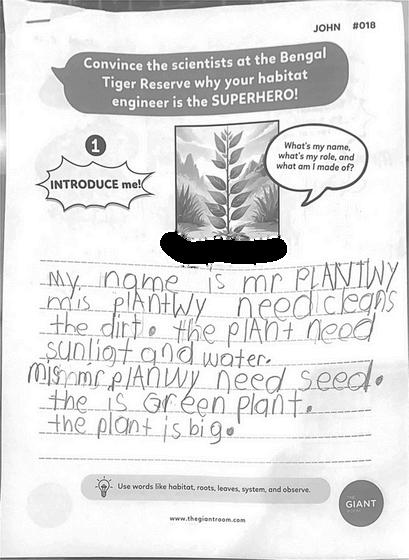 JOHN #018
Convince the scientists at the Bengal
Tiger Reserve why your habitat
engineer is the SUPERHERO!
1
INTRODUCE me!
What's my name,
what's my role, and
what am I made of?
my name is mr PLANTWY
mis plANtWy need cleans
the dirt. the plANt need
sunligt and water.
mis mr plANWy need seed.
the is Green plant.
the plant is big.
Use words like habitat, roots, leaves, system, and observe.
www.thegiantroom.com
THE
GIANT
ROOM